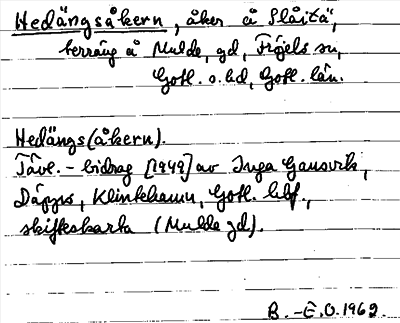 Hedängsåkern, åker å Slåitä,
terräng å Mulde, gd, Fröjels sn,
Gotl. s. hd, Gotl. län.
Hedängs(åkern).
Tävl. - bidrag [1949] av Inga Gansvik,
Däpps, Klintehamn, Gotl. hbf.,
skifteskarta (Mulde gd).
B. - E. O. 1962.